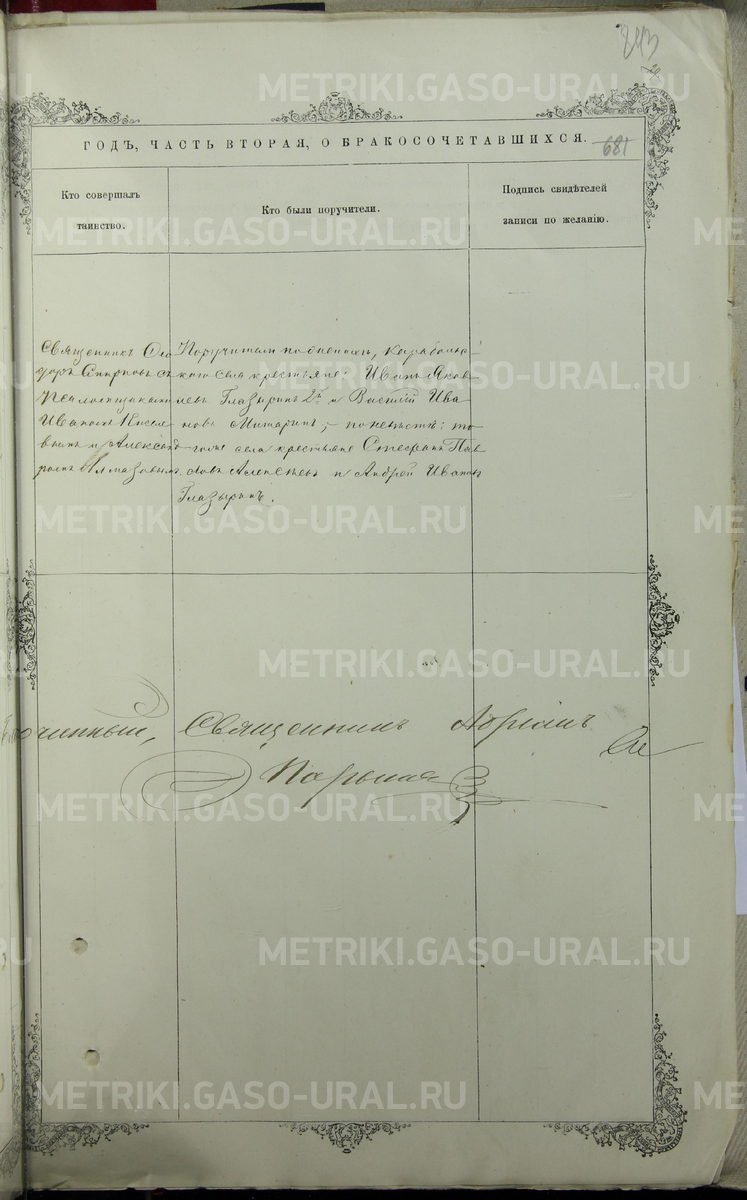 243
ГОДЪ, ЧАСТЬ ВТОРАЯ, О БРАКОСОЧЕТАВШИХСЯ.
681
Кто совершалъ
таинство.
Кто были поручители.
Подпись свидѣтелей
записи по желанію.
Священникъ Ѳео
доръ Смирновъ съ
Псаломщиками
Иваномъ Кисел
вымъ и Александ
ромъ Алмазовымъ.
Поручители по женихѣ, Карабольс
каго села крестьяне: Иванъ Яков
левъ Глазыринъ 2й и Василій Ива
новъ Митаринъ; по невѣстѣ: то
гоже села крестьяне Стефанъ Пав
ловъ Алексѣевъ и Андрей Ивановъ
Глазыринъ.
чинный, Священникъ Адріанъ
METRIKI.GASO-URAL.RU